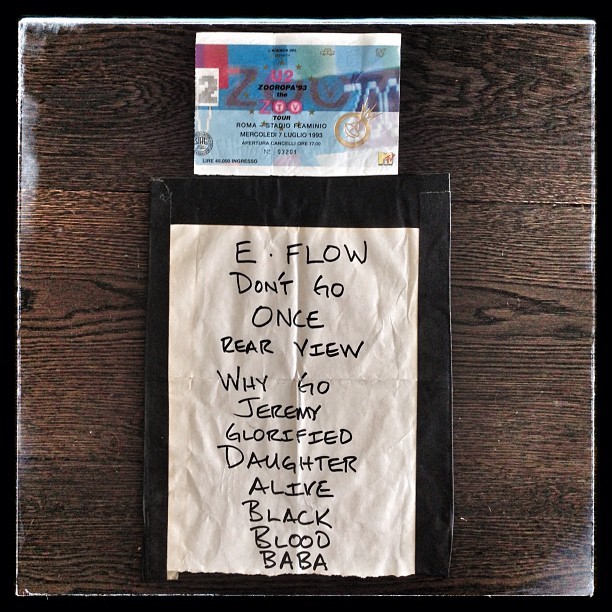 U2
ZOOROPA'93
the
ZOO TV
TOUR
ROMA - STADIO FLAMINIO
MERCOLEDI 7 LUGLIO 1993
APERTURA CANCELLI ORE 17.00
Nº 03201
LIRE 40.000 INGRESSO
E. FLOW
DON'T GO
ONCE
REAR VIEW
WHY GO
JEREMY
GLORIFIED
DAUGHTER
ALIVE
BLACK
BLOOD
BABA